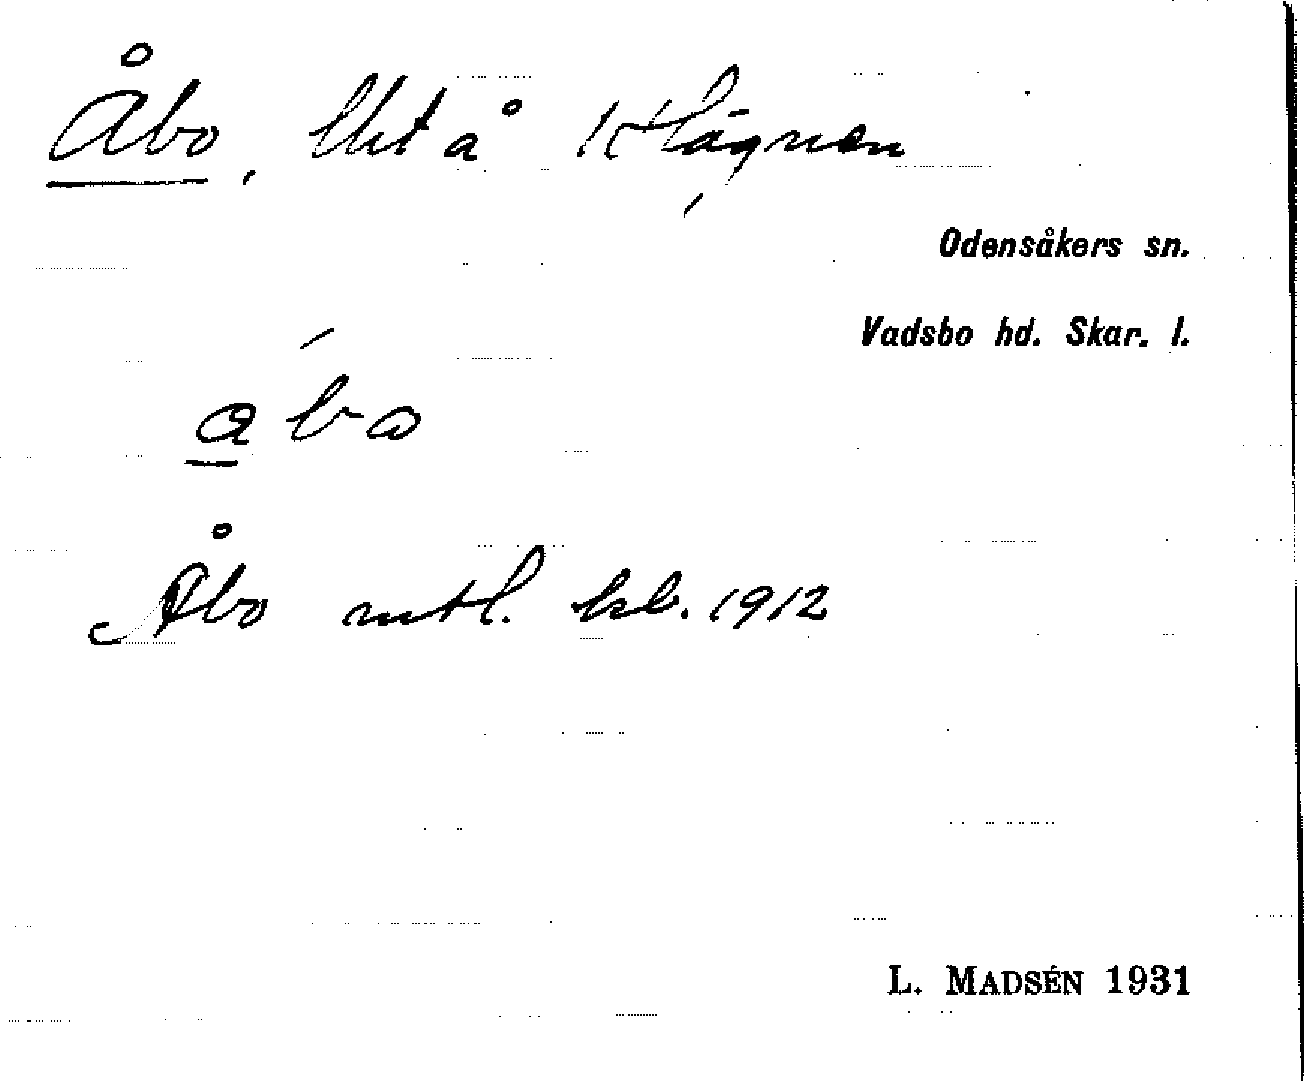 Åbo, lht å Klågnen
Odensåkers sn.
Vadsbo hd. Skar. l.
a bo
Åbo mtl. kl. 1912
L. MADSÉN 1931